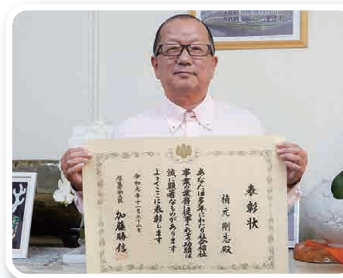 表彰状
楠元剛志殿
あなたは多年にわたり社会福祉
事業の業務に従事されその功績は
誠に顕著なものがあります
よってここに表彰します
令和元年十一月二十二日
厚生労働大臣 加藤勝信